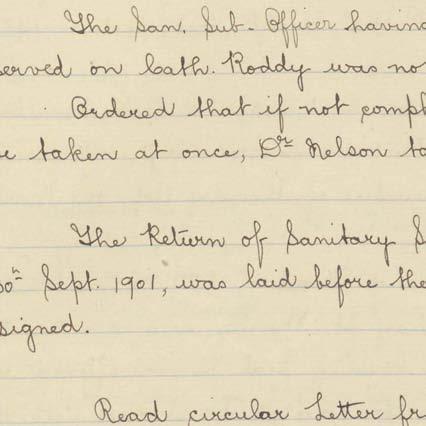 The San. Sub-Officer having
served on Cath. Roddy was no
Ordered that if not compl
taken at once, Dr Nelson to
The Return of Sanitary S
30th Sept. 1901, was laid before the
signed.
Read circular Letter fr